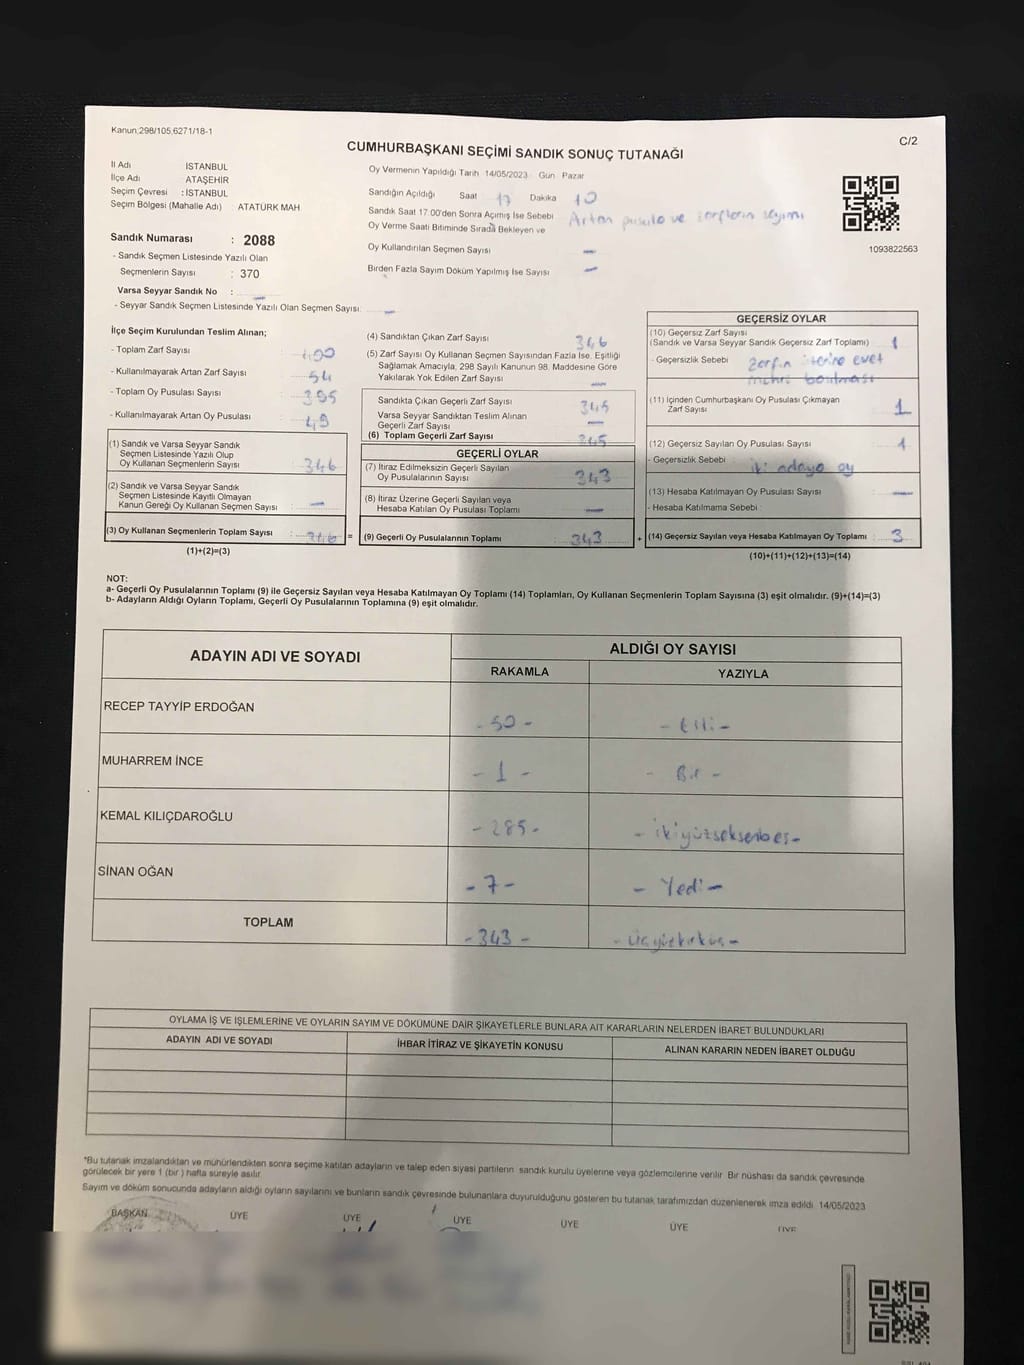 Kanun;298/105,6271/18-1
C/2
CUMHURBAŞKANI SEÇİMİ SANDIK SONUÇ TUTANAĞI
İl Adı : İSTANBUL
İlçe Adı : ATAŞEHİR
Seçim Çevresi : İSTANBUL
Seçim Bölgesi (Mahalle Adı) : ATATÜRK MAH
Sandık Numarası : 2088
- Sandık Seçmen Listesinde Yazılı Olan
Seçmenlerin Sayısı : 370
Varsa Seyyar Sandık No : —
- Seyyar Sandık Seçmen Listesinde Yazılı Olan Seçmen Sayısı: —
Oy Vermenin Yapıldığı Tarih 14/05/2023 Gün Pazar
Sandığın Açıldığı Saat 17 Dakika 10
Sandık Saat 17.00'den Sonra Açılmış İse Sebebi Artan pusula ve zarfların sayımı
Oy Verme Saati Bitiminde Sırada Bekleyen ve
Oy Kullandırılan Seçmen Sayısı —
Birden Fazla Sayım Döküm Yapılmış İse Sayısı —
1093822563
İlçe Seçim Kurulundan Teslim Alınan;
- Toplam Zarf Sayısı : 400
- Kullanılmayarak Artan Zarf Sayısı : 54
- Toplam Oy Pusulası Sayısı : 395
- Kullanılmayarak Artan Oy Pusulası : 49
(1) Sandık ve Varsa Seyyar Sandık
Seçmen Listesinde Yazılı Olup
Oy Kullanan Seçmenlerin Sayısı : 346
(2) Sandık ve Varsa Seyyar Sandık
Seçmen Listesinde Kayıtlı Olmayan
Kanun Gereği Oy Kullanan Seçmen Sayısı : —
(3) Oy Kullanan Seçmenlerin Toplam Sayısı : 346 =
(1)+(2)=(3)
(4) Sandıktan Çıkan Zarf Sayısı : 346
(5) Zarf Sayısı Oy Kullanan Seçmen Sayısından Fazla İse, Eşitliği
Sağlamak Amacıyla, 298 Sayılı Kanunun 98. Maddesine Göre
Yakılarak Yok Edilen Zarf Sayısı : —
Sandıkta Çıkan Geçerli Zarf Sayısı : 345
Varsa Seyyar Sandıktan Teslim Alınan
Geçerli Zarf Sayısı : —
(6) Toplam Geçerli Zarf Sayısı : 345
GEÇERLİ OYLAR
(7) İtiraz Edilmeksizin Geçerli Sayılan
Oy Pusulalarının Sayısı : 343
(8) İtiraz Üzerine Geçerli Sayılan veya
Hesaba Katılan Oy Pusulası Toplamı : —
(9) Geçerli Oy Pusulalarının Toplamı : 343 +
GEÇERSİZ OYLAR
(10) Geçersiz Zarf Sayısı
(Sandık ve Varsa Seyyar Sandık Geçersiz Zarf Toplamı) : 1
- Geçersizlik Sebebi : Zarfın üzerine evet
mührü basılması
(11) İçinden Cumhurbaşkanı Oy Pusulası Çıkmayan
Zarf Sayısı : 1
(12) Geçersiz Sayılan Oy Pusulası Sayısı : 1
- Geçersizlik Sebebi : iki adaya oy
(13) Hesaba Katılmayan Oy Pusulası Sayısı : —
- Hesaba Katılmama Sebebi :
(14) Geçersiz Sayılan veya Hesaba Katılmayan Oy Toplamı : 3
(10)+(11)+(12)+(13)=(14)
NOT:
a- Geçerli Oy Pusulalarının Toplamı (9) ile Geçersiz Sayılan veya Hesaba Katılmayan Oy Toplamı (14) Toplamları, Oy Kullanan Seçmenlerin Toplam Sayısına (3) eşit olmalıdır. (9)+(14)=(3)
b- Adayların Aldığı Oyların Toplamı, Geçerli Oy Pusulalarının Toplamına (9) eşit olmalıdır.
ADAYIN ADI VE SOYADI
ALDIĞI OY SAYISI
RAKAMLA YAZIYLA
RECEP TAYYİP ERDOĞAN -50- - Elli -
MUHARREM İNCE - 1 - - Bir -
KEMAL KILIÇDAROĞLU -285- - ikiyüzseksenbeş-
SİNAN OĞAN -7- - Yedi -
TOPLAM -343- - üçyüzkırküç-
OYLAMA İŞ VE İŞLEMLERİNE VE OYLARIN SAYIM VE DÖKÜMÜNE DAİR ŞİKAYETLERLE BUNLARA AİT KARARLARIN NELERDEN İBARET BULUNDUKLARI
ADAYIN ADI VE SOYADI İHBAR İTİRAZ VE ŞİKAYETİN KONUSU ALINAN KARARIN NEDEN İBARET OLDUĞU
*Bu tutanak imzalandıktan ve mühürlendikten sonra seçime katılan adayların ve talep eden siyasi partilerin sandık kurulu üyelerine veya gözlemcilerine verilir. Bir nüshası da sandık çevresinde
görülecek bir yere 1 (bir) hafta süreyle asılır.
Sayım ve döküm sonucunda adayların aldığı oyların sayılarını ve bunların sandık çevresinde bulunanlara duyurulduğunu gösteren bu tutanak tarafımızdan düzenlenerek imza edildi. 14/05/2023
BAŞKAN ÜYE ÜYE ÜYE ÜYE ÜYE ÜYE